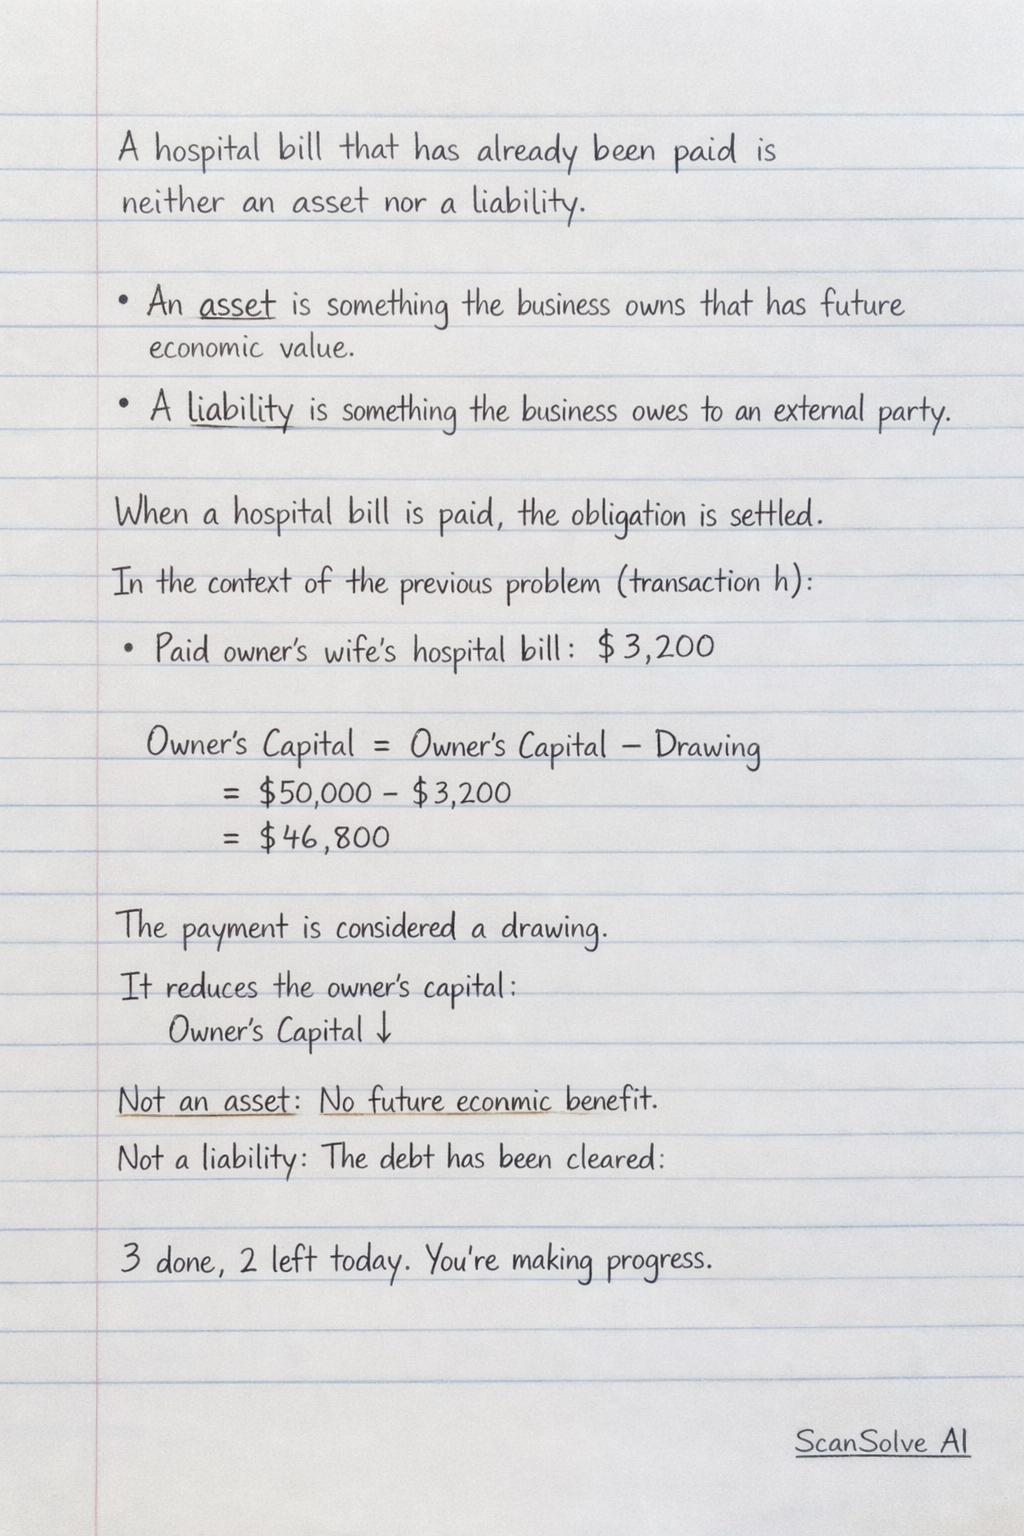 A hospital bill that has already been paid is
neither an asset nor a liability.
• An asset is something the business owns that has future
economic value.
• A liability is something the business owes to an external party.
When a hospital bill is paid, the obligation is settled.
In the context of the previous problem (transaction h):
• Paid owner's wife's hospital bill: $3,200
Owner's Capital = Owner's Capital – Drawing
= $50,000 – $3,200
= $46,800
The payment is considered a drawing.
It reduces the owner's capital:
Owner's Capital ↓
Not an asset: No future econmic benefit.
Not a liability: The debt has been cleared:
3 done, 2 left today. You're making progress.
ScanSolve AI